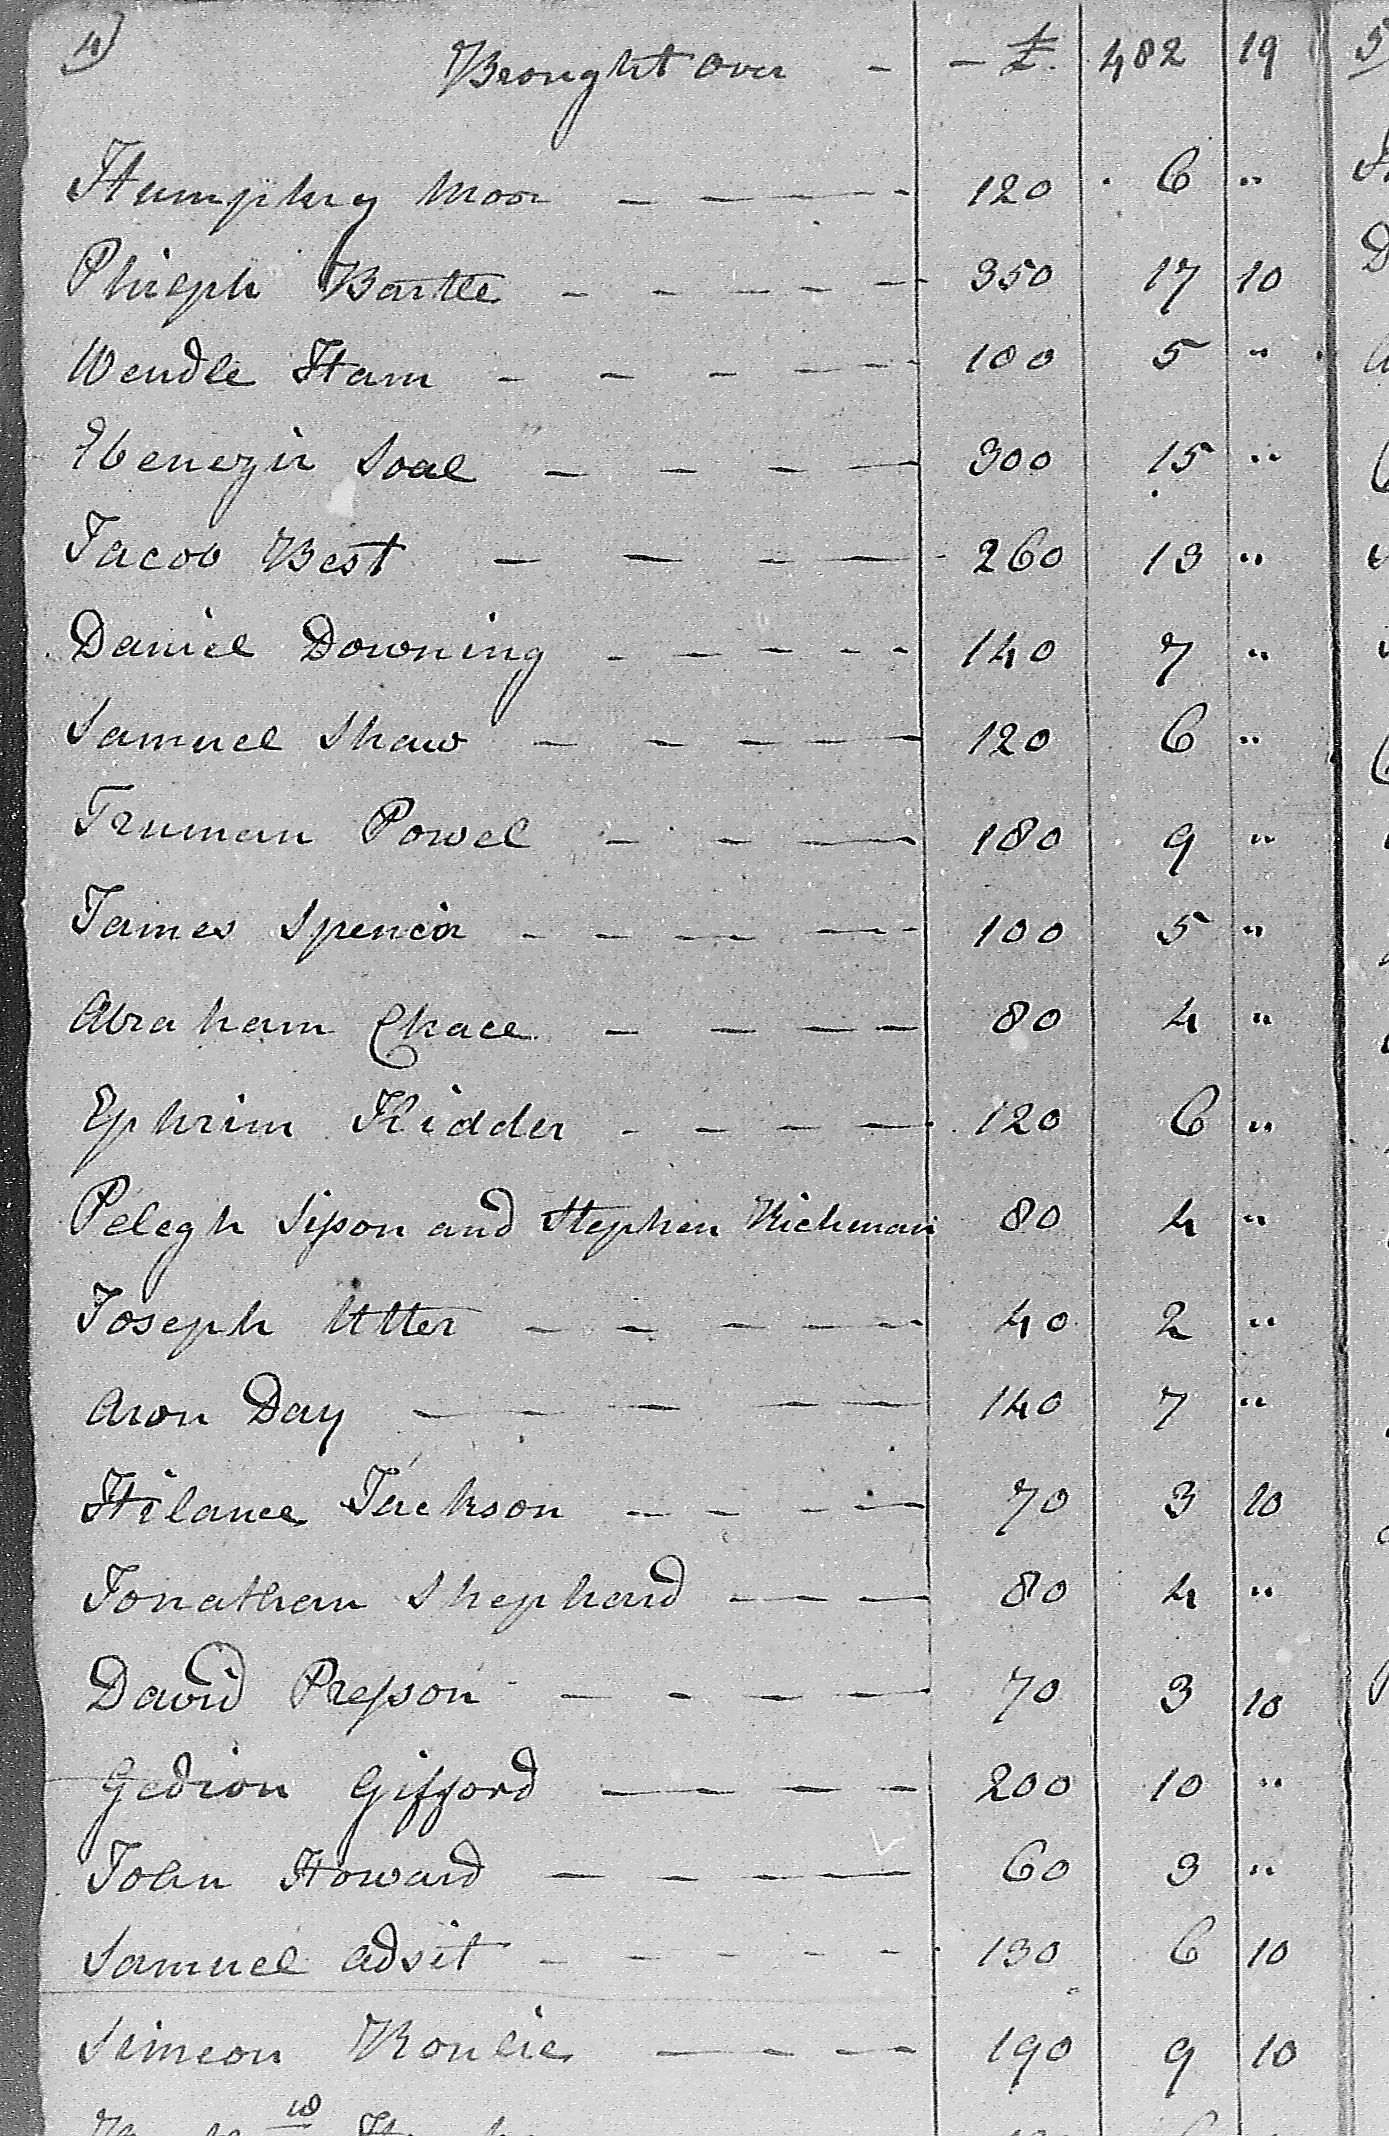 4)
Brought Over - - £. 482 19
Humphry Moor 120 6 "
Philiph Bartle 350 17 10
Wendle Ham 100 5 "
Ebenezir Soal 300 15 "
Jacob Best 260 13 "
Daniel Downing 140 7 "
Samuel Shaw 120 6 "
Truman Powel 180 9 "
James Spencer 100 5 "
Abraham Chace 80 4 "
Ephrim Kidder 120 6 "
Pelegh Sison and Stephen Richman 80 4 "
Joseph Utter 40 2 "
Aron Day 140 7 "
Hilance Jackson 70 3 10
Jonathan Shephard 80 4 "
David Presson 70 3 10
Gedion Gifford 200 10 "
John Howard 60 3 "
Samuel Adsit 130 6 10
Simeon 190 9 10